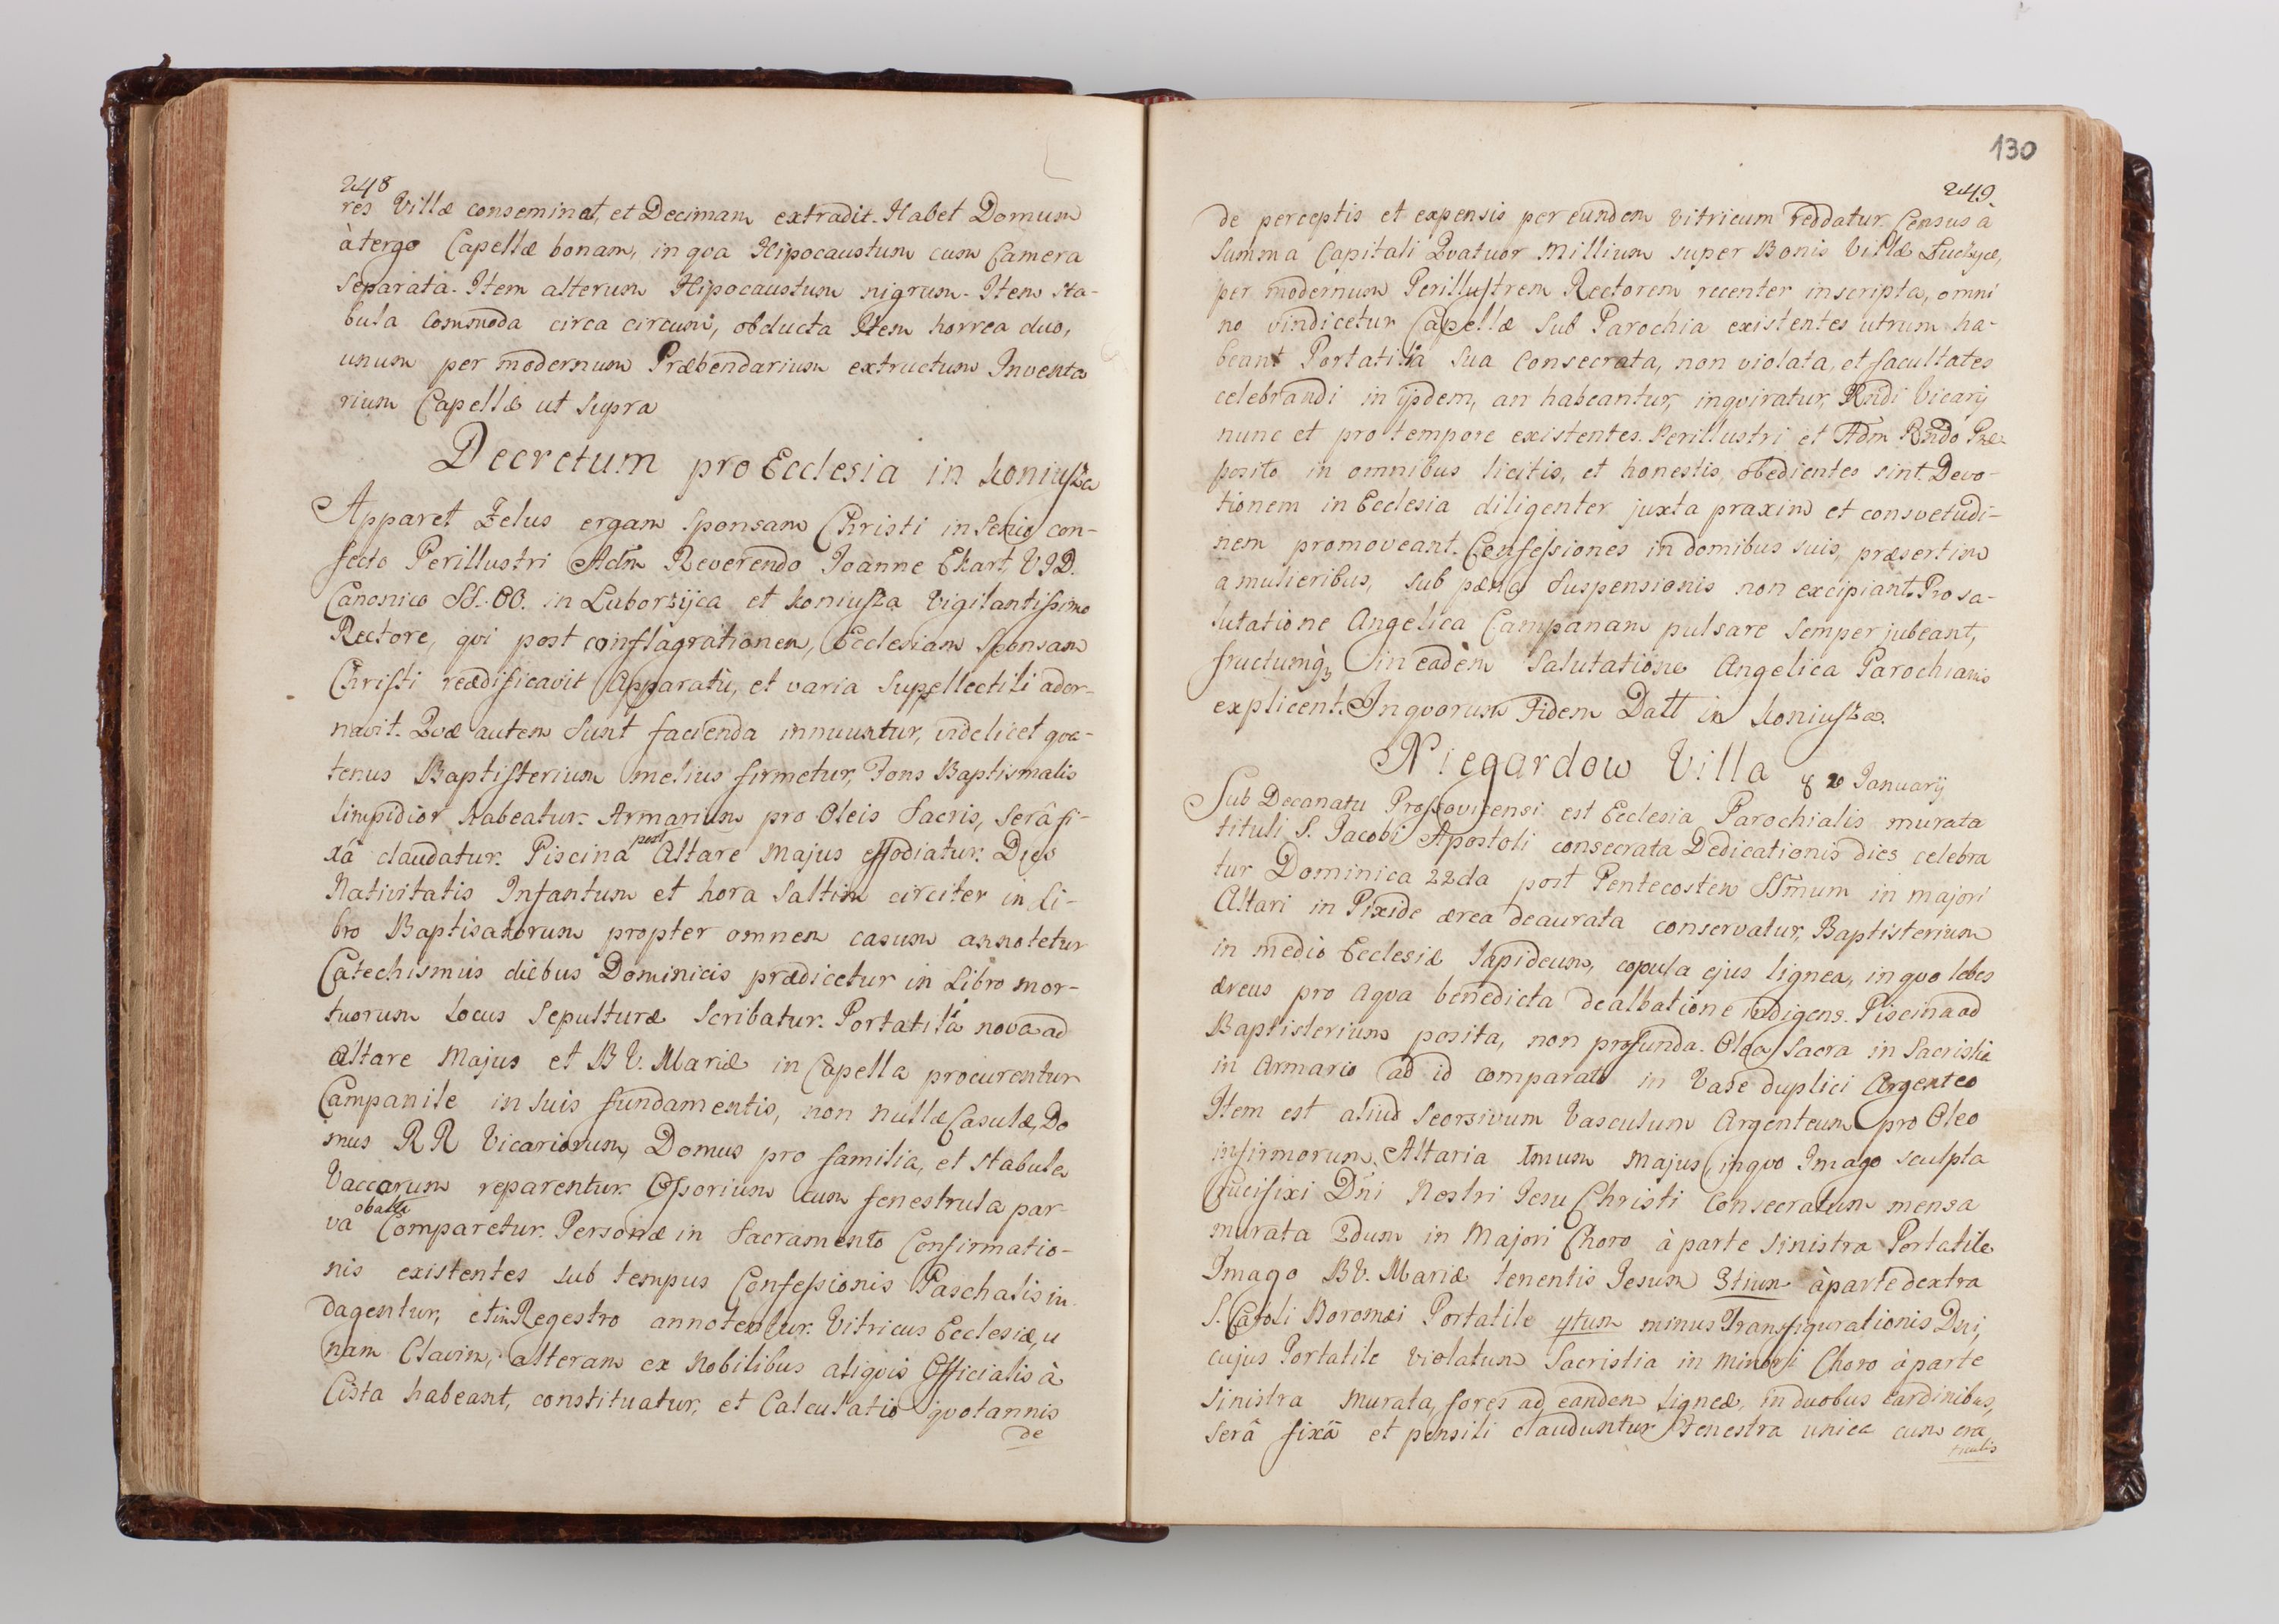 248
res Villæ conseminat, et Decimam extradit. Habet Domum
à tergo Capellæ bonam, in qva Hipocaustum cum Camera
Separata. Item alterum Hipocaustum nigrum. Item sta-
bula commoda circa circum, obducta Item horrea duo,
unum per modernum Præbendarium extructum Inventa
rium Capellæ ut supra
Decretum pro Ecclesia in Koniusza
Apparet Zelus ergam Sponsam Christi in Senio con-
fecto Perillustri Adm Reverendo Joanne Ekart VJD.
Canonico SS. OO. in Luborzyca et Koniusza Vigilantissimo
Rectore, qvi post conflagrationem, Ecclesiam Sponsam
Christi reædificavit Apparatu, et varia Supellectili ador-
navit. Qvæ autem Sunt facienda innuuntur, videlicet qva-
tenus Baptisterium melius firmetur, Fons Baptismalis
limpidior habeatur. Armarium pro Oleis Sacris, Serâ fi-
xâ claudatur. Piscina post Altare Majus effodiatur. Dies
Nativitatis Infantum et hora Saltim circiter in Li-
bro Baptisatorum propter omnem casum annotetur
Catechismus diebus Dominicis prædicetur in Libro mor-
tuorum Locus Sepulturæ Scribatur. Portatilia nova ad
Altare Majus et B V. Mariæ in Capella procurentur
Campanile in Suis fundamentis, non nullæ Casulæ, Do
mus R R Vicariorum, Domus pro familia, et stabula
Vaccarum reparentur. Ossorium cum fenestrula par-
va Comparetur. Personæ in Sacramento Confirmatio-
nis existentes sub tempus Confessionis Paschalis in
dagentur, et in Regestro annotentur. Vitricus Ecclesiæ, u
nam Clavim, alteram ex Nobilibus aliqvis Officialis à
Cista habeant, constituatur, et Calculatio qvotannis
de
130
249
de perceptis et expensis per eundem Vitricum reddatur. Census à
Summa Capitali Qvatuor Millium super Bonis Villæ
per modernum Perillustrem Rectorem recenter inscripta, omni
no vindicetur Capellæ Sub Parochia existentes utrum ha-
beant Portatilia Sua Consecrata, non violata, et facultates
celebrandi in ijsdem, an habeantur, inqviratur, Rndi Vicarij
nunc et pro tempore existentes. Perillustri et Adm Rndo Præ
posito in omnibus licitis, et honestis obedientes sint. Devo-
tionem in Ecclesia diligenter juxta praxim et consvetudi-
nem promoveant. Confessiones in domibus suis, præsertim
a mulieribus, sub pæna Suspensionis non excipiant. Pro sa-
lutatione Angelica Campanam pulsare Semper jubeant,
fructumq3 in eadem Salutatione Angelica Parochianis
explicent. In qvorum Fidem Datt in Koniusza.
Niegardow Villa 20 Januarij
Sub Decanatu Proszovicensi est Ecclesia Parochialis murata
tituli S. Jacobi Apostoli consecrata Dedicationis dies celebra
tur Dominica 22da post Pentecosten SSmum in majori
Altari in Pixide ærea deaurata conservatur, Baptisterium
in medio Ecclesiæ lapideum, copula ejus lignea, in qvo lebes
æreus pro Aqva benedicta dealbatione indigens. Piscina ad
Baptisterium posita, non profunda. Olea Sacra in Sacristia
in Armario ad id comparato in Vase duplici Argenteo
Item est aliud Seorsivum Vasculum Argenteum pro Oleo
infirmorum. Altaria Imum Majus, in qvo Imago sculpta
Crucifixi Dni Nostri Jesu Christi Consecratum mensa
murata 2dum in Majori Choro à parte sinistra Portatile
Imago B V. Mariæ tenentis Jesum 3tium à parte dextra
S. Caroli Boromæi Portatile 4tum minus Transfigurationis Dni,
cujus Portatile Violatum Sacristia in minori Choro à parte
Sinistra Murata, fores ad eandem Ligneæ, in duobus Cardinibus,
Serâ fixâ et pensili clauduntur Fenestra unica cum cra
ticulis